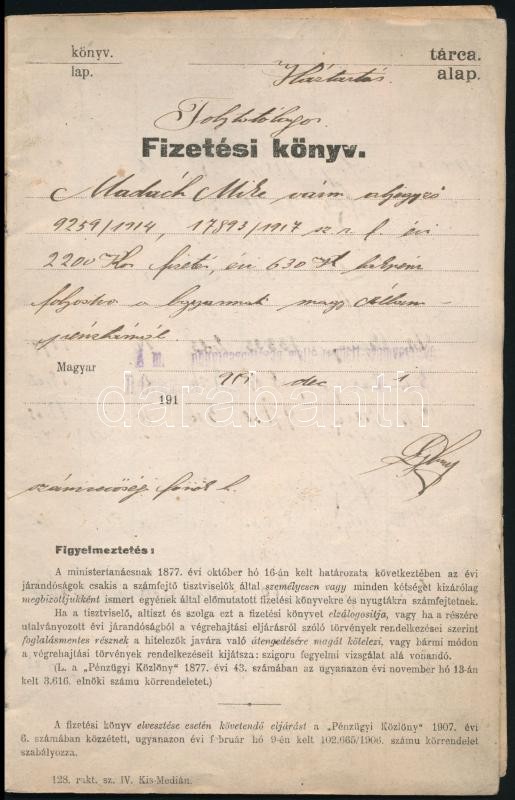 könyv. tárca.
lap. Háztartás. alap.
Fizetési könyv.
Madách
9259/1914, 17893/1917 sz. r. f. évi
2200 Kor fizetés, évi 630 K
a magy. állam-
pénztárnál.
Magyar
191 dec 1.
darabanth
számvevőség
Figyelmeztetés:
A ministertanácsnak 1877. évi október hó 16-án kelt határozata következtében az évi
járandóságok csakis a számfejtő tisztviselők által személyesen vagy minden kétséget kizárólag
megbizottjukként ismert egyének által előmutatott fizetési könyvekre és nyugtákra számfejtetnek.
Ha a tisztviselő, altiszt és szolga ezt a fizetési könyvet elzálogosítja, vagy ha a részére
utalványozott évi járandóságból a végrehajtási eljárásról szóló törvények rendelkezései szerint
foglalásmentes résznek a hitelezők javára való átengedésére magát kötelezi, vagy bármi módon
a végrehajtási törvények rendelkezéseit kijátsza: szigoru fegyelmi vizsgálat alá vonandó.
(L. a „Pénzügyi Közlöny" 1877. évi 43. számában az ugyanazon évi november hó 13-án
kelt 3.616. elnöki számu körrendeletet.)
A fizetési könyv elvesztése esetén követendő eljárást a „Pénzügyi Közlöny" 1907. évi
6. számában közzétett, ugyanazon évi február hó 9-én kelt 102.665/1906. számu körrendelet
szabályozza.
128. rakt. sz. IV. Kis-Medián.